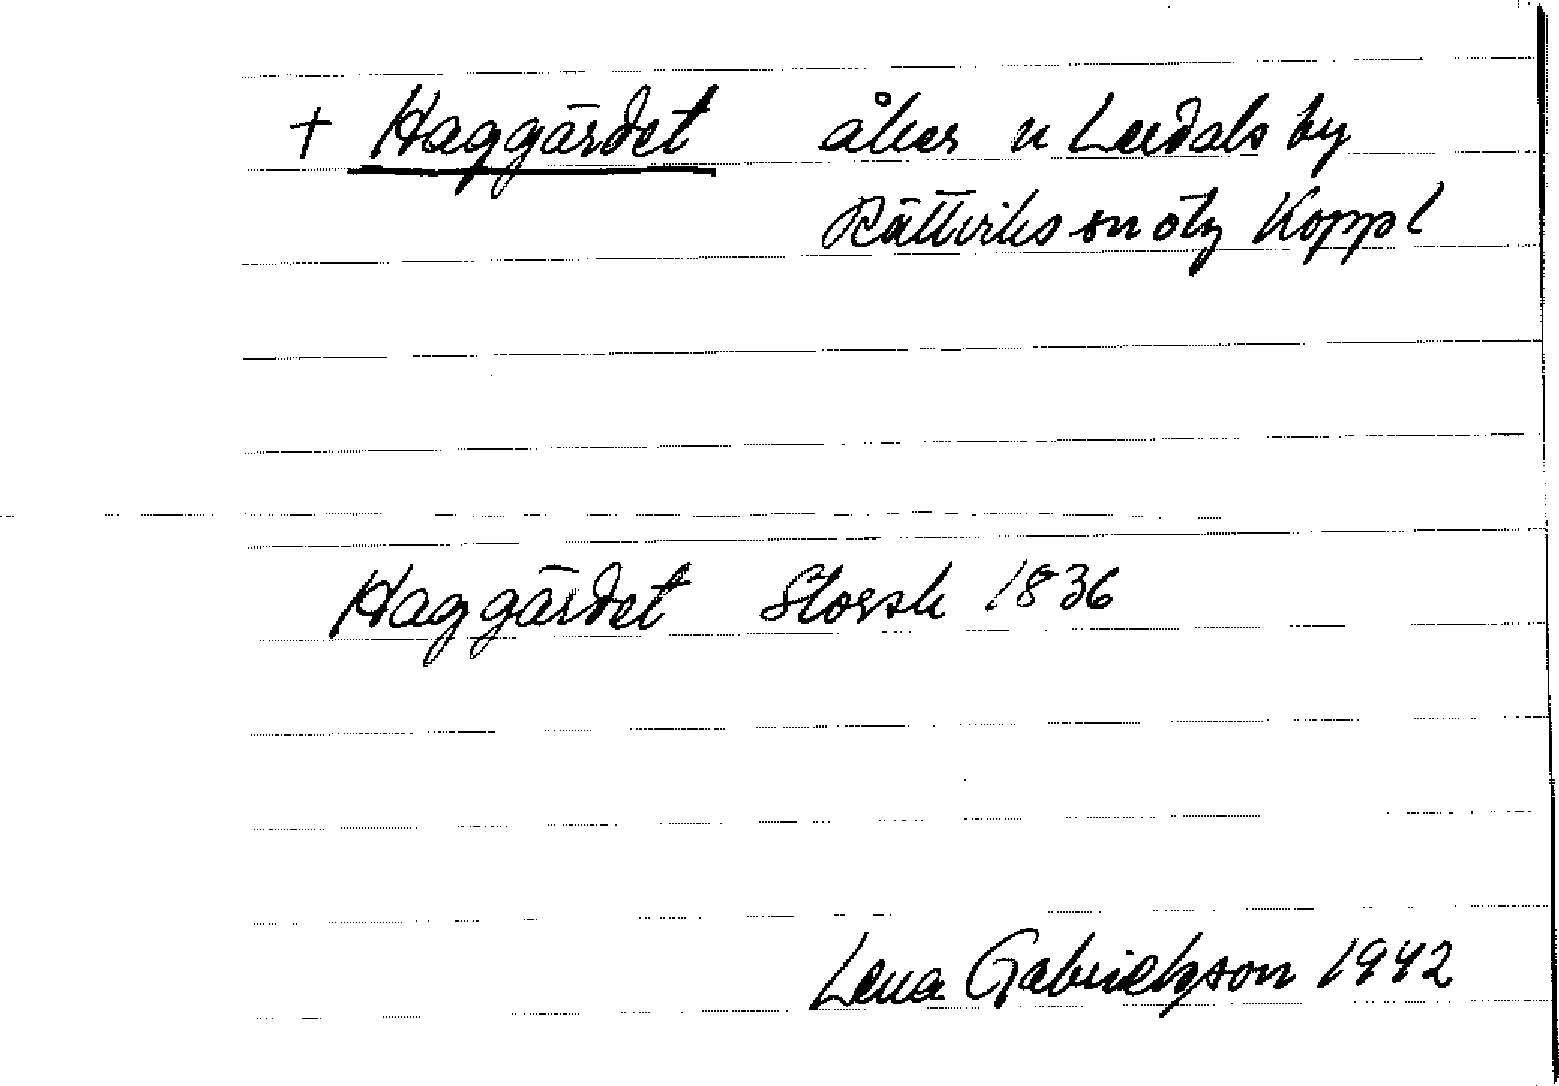 + Haggärdet åker n Leedals by
Rättviks sn o tg Koppl
Haggärdet Storsk 1836
Lena Gabrielsson 1942